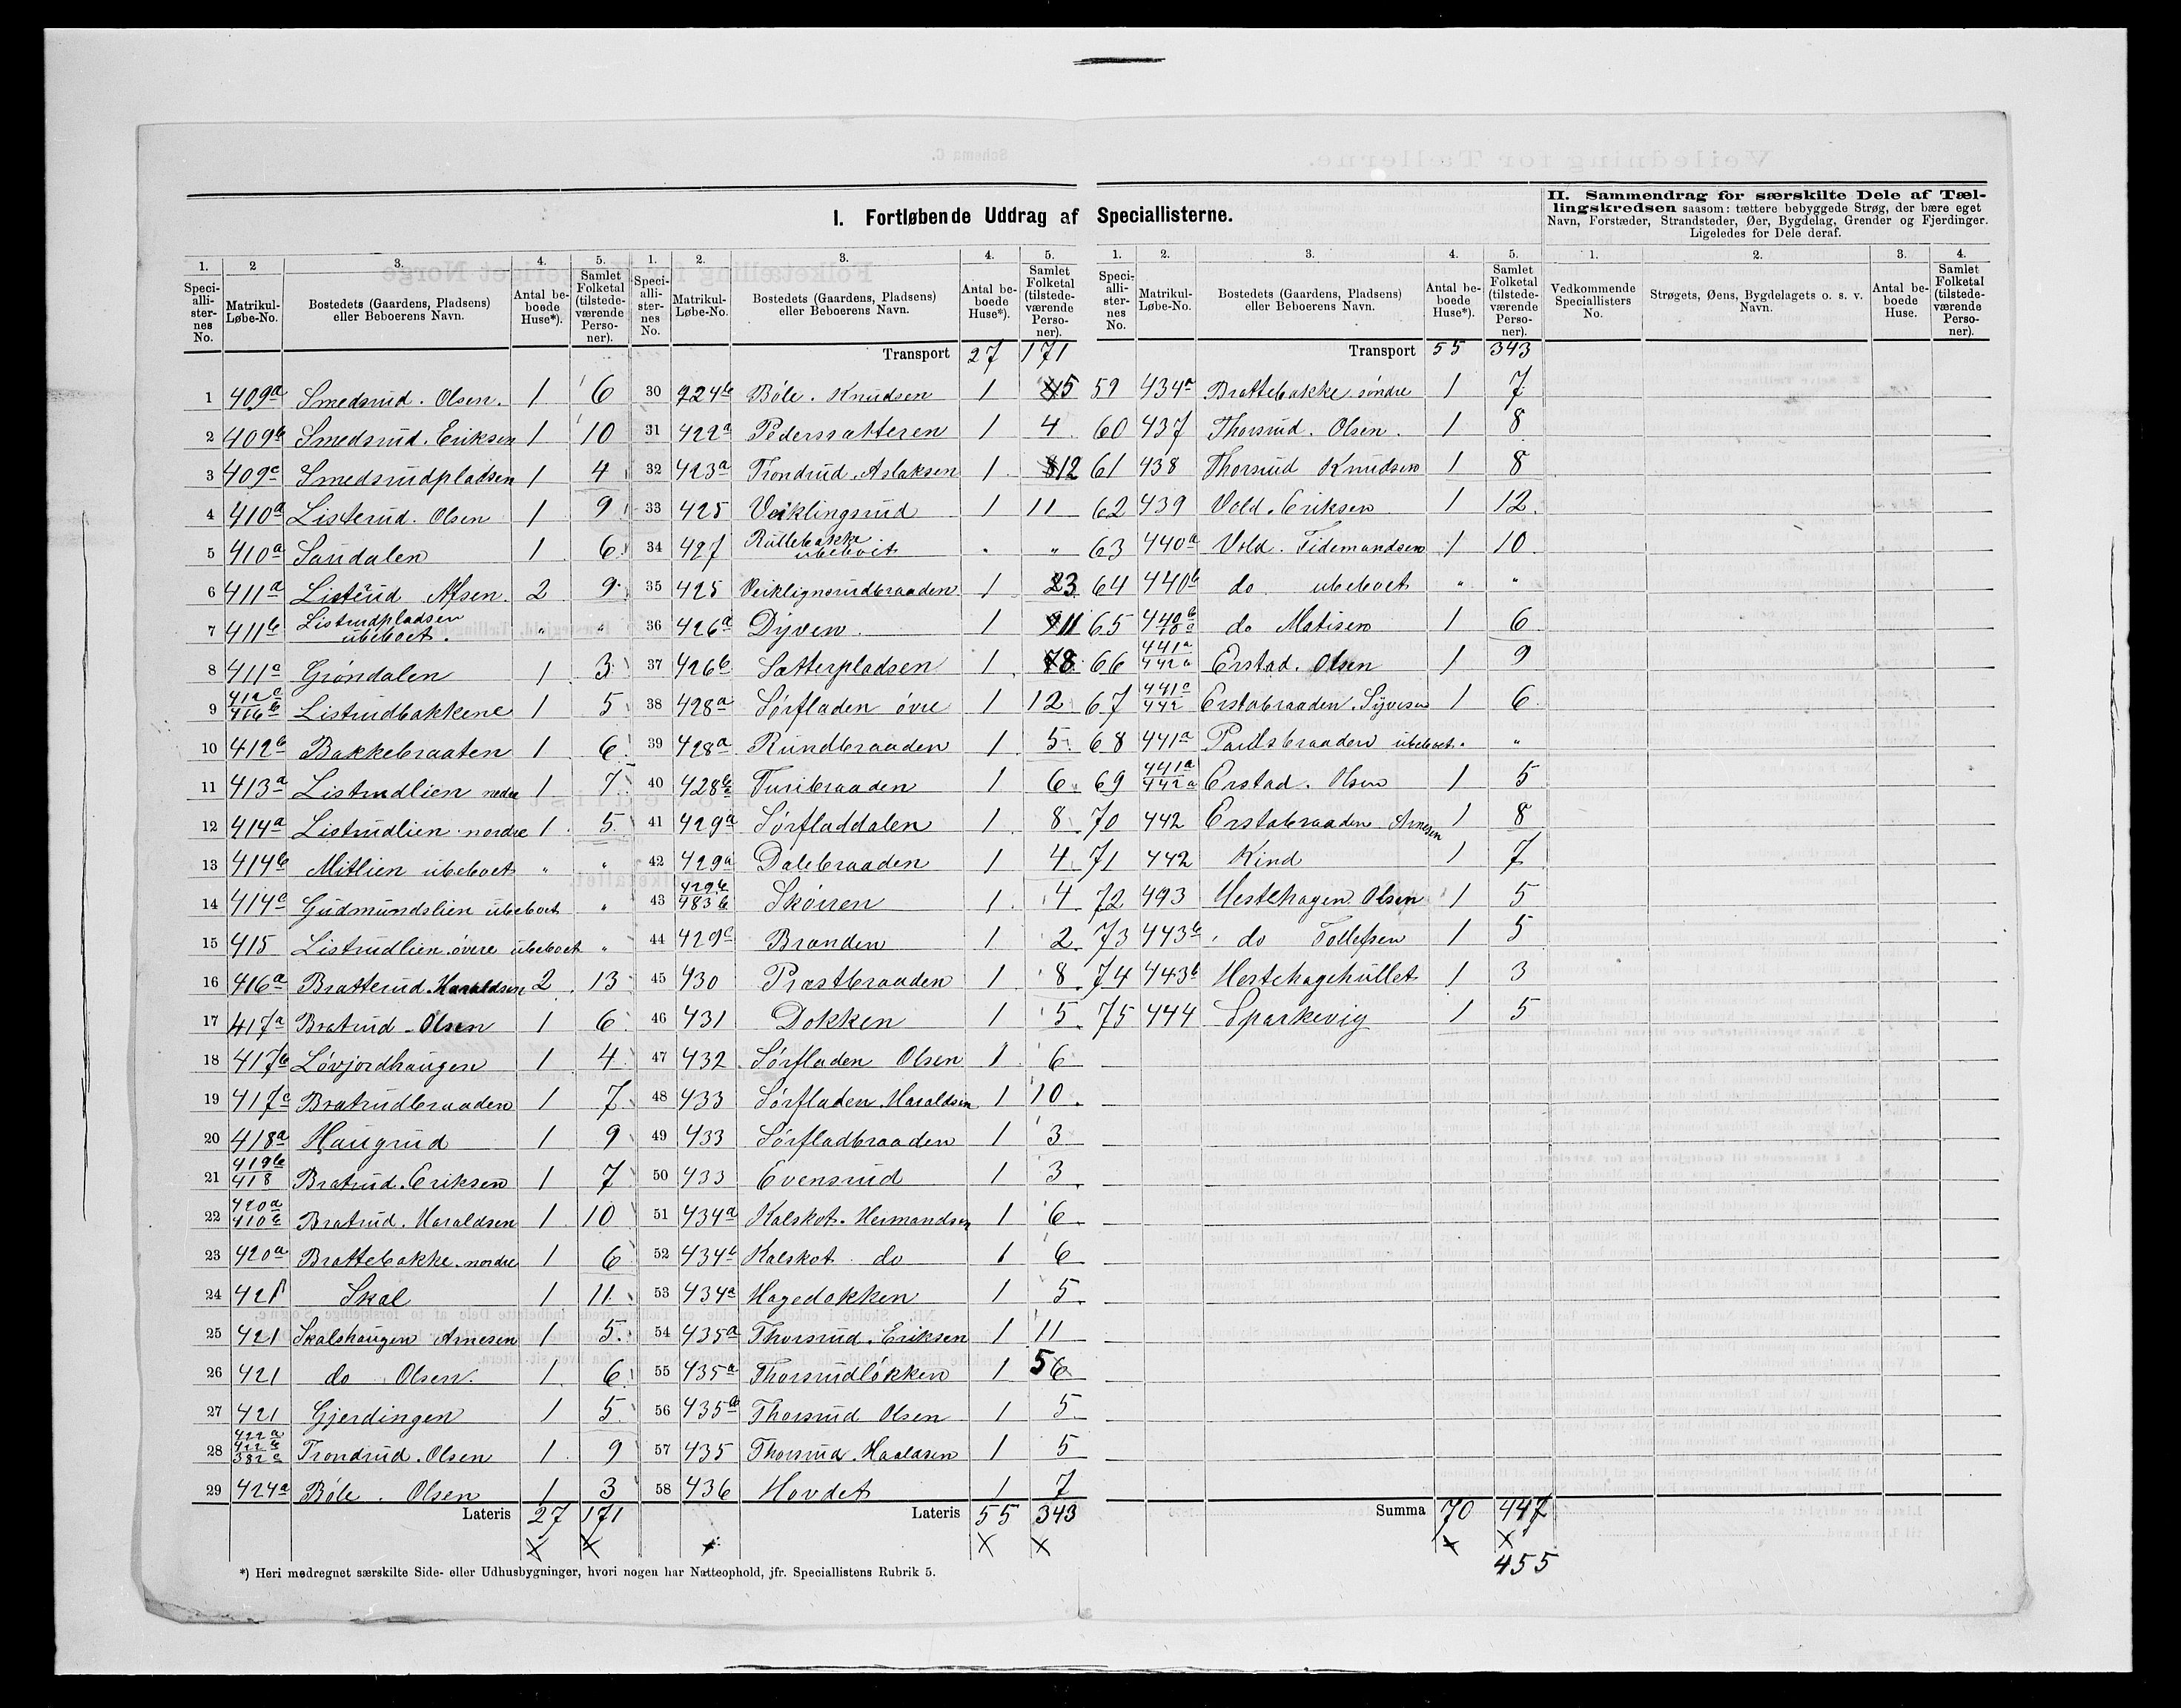 I. Fortløbende Uddrag af Speciallisterne.
II. Sammendrag for særskilte Dele af Tæl-
lingskredsen saasom: tættere bebyggede Strøg, der bære eget
Navn, Forstæder, Strandsteder, Øer, Bygdelag, Grender og Fjerdinger.
Ligeledes for Dele deraf.
1. 2 3. 4. 5. 1. 2. 3. 4. 5. 1. 2. 3. 4. 5. 1. 2. 3. 4.
Speci-alli-ster-nes No. Matrikul-Løbe-No. Bostedets (Gaardens, Pladsens) eller Beboerens Navn. Antal be-boede Huse*). Samlet Folketal (tilstede-værende Perso-ner).
Speci-alli-ster-nes No. Matrikul-Løbe-No. Bostedets (Gaardens, Pladsens) eller Beboerens Navn. Antal be-boede Huse*). Samlet Folketal (tilstede-værende Perso-ner).
Speci-alli-ster-nes No. Matrikul-Løbe-No. Bostedets (Gaardens, Pladsens) eller Beboerens Navn. Antal be-boede Huse*). Samlet Folketal (tilstede-værende Perso-ner).
Vedkommende Speciallisters No. Strøgets, Øens, Bygdelagets o. s. v. Navn. Antal be-boede Huse. Samlet Folketal (tilstede-værende Perso-ner).
1 409a Smedsrud. Olsen. 1 6
2 409b Smedsrud. Eriksen 1 10
3 409c Smedsrudpladsen 1 4
4 410a Listerud. Olsen 1 9
5 410a Saudalen 1 6
6 411a Listerud 2 9
7 411b Listrudpladsen ubeboet. " "
8 411a Grøndalen 1 3
9 Listrudbakkene 1 5
10 412b Bakkebraaten 1 6
11 413a Listrudlien nedre 1 7
12 414a Listrudlien nordre 1 5
13 414b Mitlien ubeboet " "
14 414c Gudmundslien ubeboet "
15 415 Listrudlien øvre ubeboet "
16 416a Bratterud. Haraldsen 2 13
17 417a Bratrud. Olsen 1 6
18 417b Løvjordhaugen 1 4
19 417c Bratrudbraaden 1 7
20 418a Haugrud 1 9
21 419b 418 Bratrud. Eriksen 1 7
22 420a 410b Bratrud. Haraldsen 1 10
23 420a Brattebakke. nordre 1 6
24 421 Skal 1 11
25 421 Skalshaugen Arnesen 1 5
26 421 do Olsen. 1 6
27 421 Gjerdingen 1 5
28 422a 422b 382c Trondrud. Olsen 1 9
29 424a Bøle. Olsen 1 3
Lateris 27 171
Transport 27 171
30 424b Bøle. Knudsen 1 5
31 422a Pederssætteren 1 4
32 423a Trondrud. Aslaksen 1 12
33 425 Veiklingsrud 1 11
34 427 Rullebakke ubeboet . "
35 425 Veiklignsrudbraaden 1 3
36 426a Dyven. 1 11
37 426b Sætterpladsen 1 8
38 428a Sørfladen øvre 1 12
39 428a Rundbraaden 1 5
40 428b Turibraaden 1 6
41 429a Sørfladdalen 1 8
42 429a Dalebraaden 1 4
43 429b 483b Skøiren 1 4
44 429c Branden 1 2
45 430 Præstbraaden 1 8
46 431 Dokken 1 5
47 432 Sørfladen Olsen 1 6
48 433 Sørfladen. Haraldsen 1 10
49 433 Sørfladbraaden 1 3
50 433 Evensrud 1 3
51 434a Kalskot. Hermandsen 1 6
52 434b Kalskot do 1 6
53 434a Hagedokken 1 5
54 435a Thorsrud. Eriksen 1 11
55 435a Thorsrudløkken 1 56
56 435b Thorsrud Olsen 1 5
57 435 Thorsrud. Haaldsen 1 5
58 436 Hovdet 1 7
Lateris 55 343
Transport 55 343
59 434a Brattebakke søndre 1 7
60 437 Thorsrud. Olsen. 1 8
61 438 Thorsrud Knudsen 1 8
62 439 Vold. Eriksen 1 12
63 440a Vold. Tidemandsen 1 10
64 440b do ubeboet " "
65 do Matisen 1 6
66 441a 442a Erstad. Olsen 1 9
67 441c 442 Erstabraaden. Syversen 1 6
68 441a Paulsbraaden ubeboet. "
69 441a 442a Erstad. Olsen 1 5
70 442 Erstabraaden Arnesen 1 8
71 442 Kind 1 7
72 493 Hestehagen Olsen 1 5
73 443b do Tollefsen 1 5
74 443b Hestehagehullet 1 3
75 444 Sparkevig 1 5
Summa 70 447
455
*) Heri medregnet særskilte Side- eller Udhusbygninger, hvori nogen har Natteophold, jfr. Speciallistens Rubrik 5.